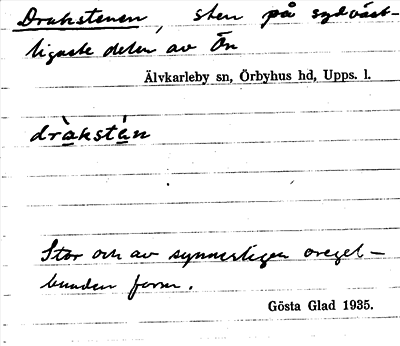 Drakstenen, sten på sydväst-
ligaste delen av Ön
Älvkarleby sn, Örbyhus hd, Upps. l.
dràkstán
Stor och av synnerligen oregel-
bunden form.
Gösta Glad 1935.